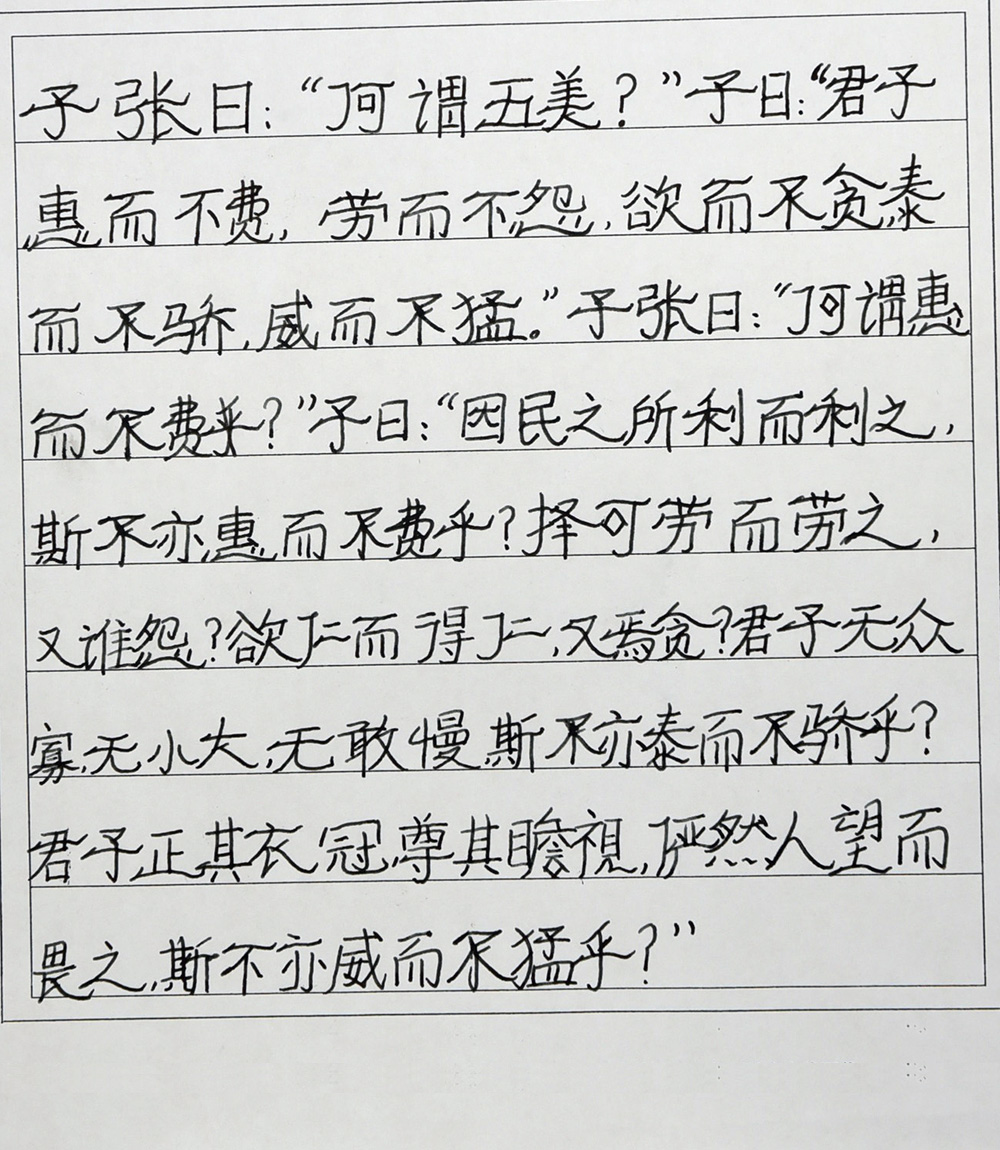 子张曰：“何谓五美？”子曰：“君子
惠而不费，劳而不怨，欲而不贪泰
而不骄，威而不猛。”子张曰：“何谓惠
而不费乎？”子曰：“因民之所利而利之，
斯不亦惠而不费乎？择可劳而劳之，
又谁怨？欲仁而得仁，又焉贪？君子无众
寡，无小大，无敢慢，斯不亦泰而不骄乎？
君子正其衣冠，尊其瞻视，俨然人望而
畏之，斯不亦威而不猛乎？”